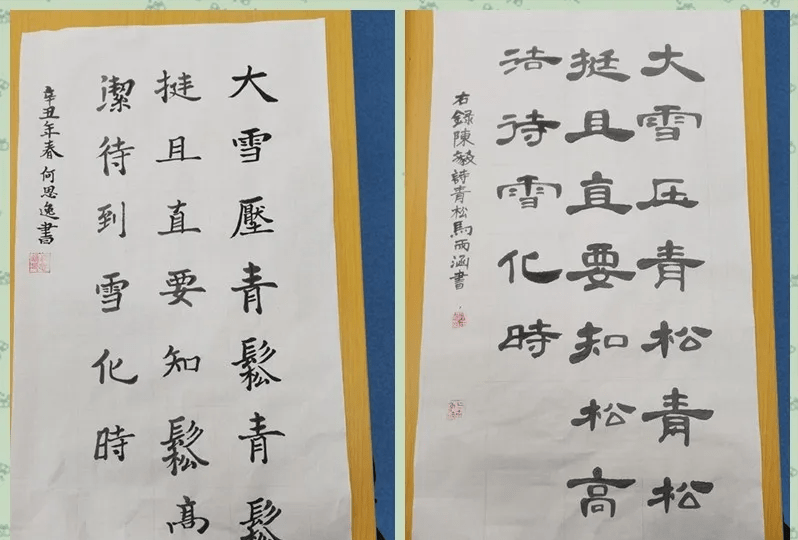 大雪壓青鬆青鬆
挺且直要知鬆高
潔待到雪化時
辛丑年春何思逸書
大雪压青松青松
挺且直要知松高
洁待雪化時
右錄陳毅詩青松馬雨涵書